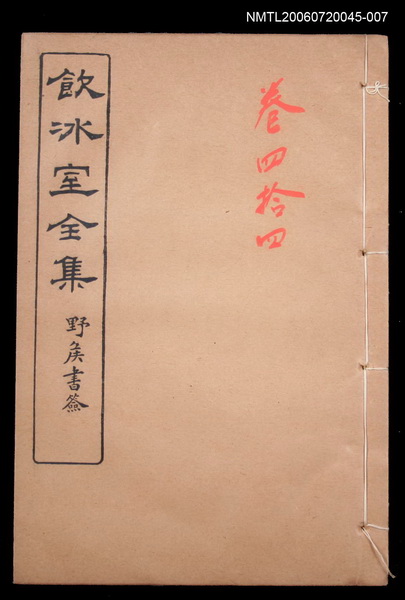 NMTL20060720045-007
卷四拾四
飲冰室全集
野侯書簽